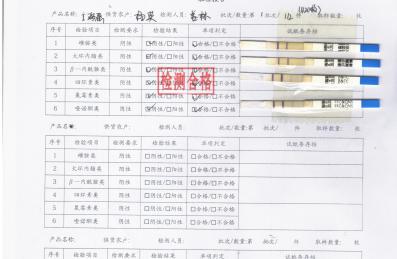 产品名称: 供货农户: 检测人员: 批次/数量:第 批次/ 取样数量: 枝
序号 检验项目 检测要求 检验结果 单项判定 试纸条存档
1 磺胺类 阴性 ☑阴性/□阳性 ☑合格/□不合格
2 大环内酯类 阴性 ☑阴性/□阳性 ☑合格/□不合格
3 β-内酰胺类 阴性 阴性/□阳性 合格/□不合格
4 四环素类 阴性 阴性/□阳性 合格/□不合格
5 氨基类 阴性 阴性/□阳性 合格/□不合格
6 喹诺酮类 阴性 ☑阴性/□阳性 ☑合格/□不合格
检测合格
产品名称: 供货农户: 检测人员: 批次/数量:第 批次/ 件 取样数量: 枝
序号 检验项目 检测要求 检验结果 单项判定 试纸条存档
1 磺胺类 阴性 □阴性/□阳性 □合格/□不合格
2 大环内酯类 阴性 □阴性/□阳性 □合格/□不合格
3 β一内酰胺类 阴性 □阴性/□阳性 □合格/□不合格
4 四环素类 阴性 □阴性/□阳性 □合格/□不合格
5 类 阴性 □阴性/□阳性 □合格/□不合格
6 喹诺酮类 阴性 □阴性/□阳性 □合格/□不合格
产品名称: 供货农户: 检测人员: 批次/数量:第 批次/ 件 取样数量: 枝
序号 检验项目 检测要求 检验结果 单项判定 试纸条存档